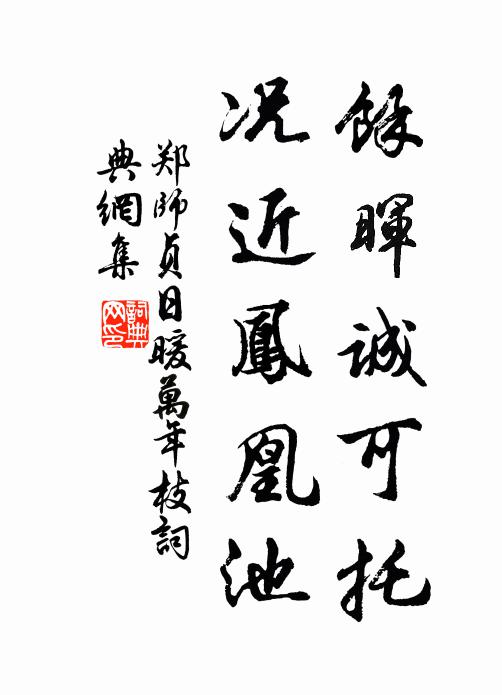 餘暉誠可托
况近鳳凰池
郑師貞日暖萬年枝詞
典網集
詞典
网印